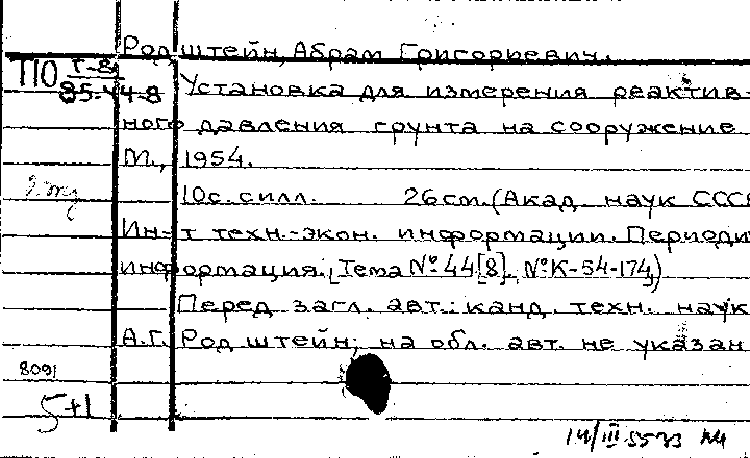 Родштейн, Абрам Григорьевич.
ПО Г-81
85-44-8
Установка для измерения реактив-
ного давления грунта на сооружение
М., 1954.
10с. с илл. 26 см. (Акад. наук СССР
Ин-т техн.-экон. информации. Периоди
информация. Тема № 44[8]. № К-54-174)
Перед загл. авт.: канд. техн. наук
А.Г. Родштейн; на обл. авт. не указан
8091
5+1